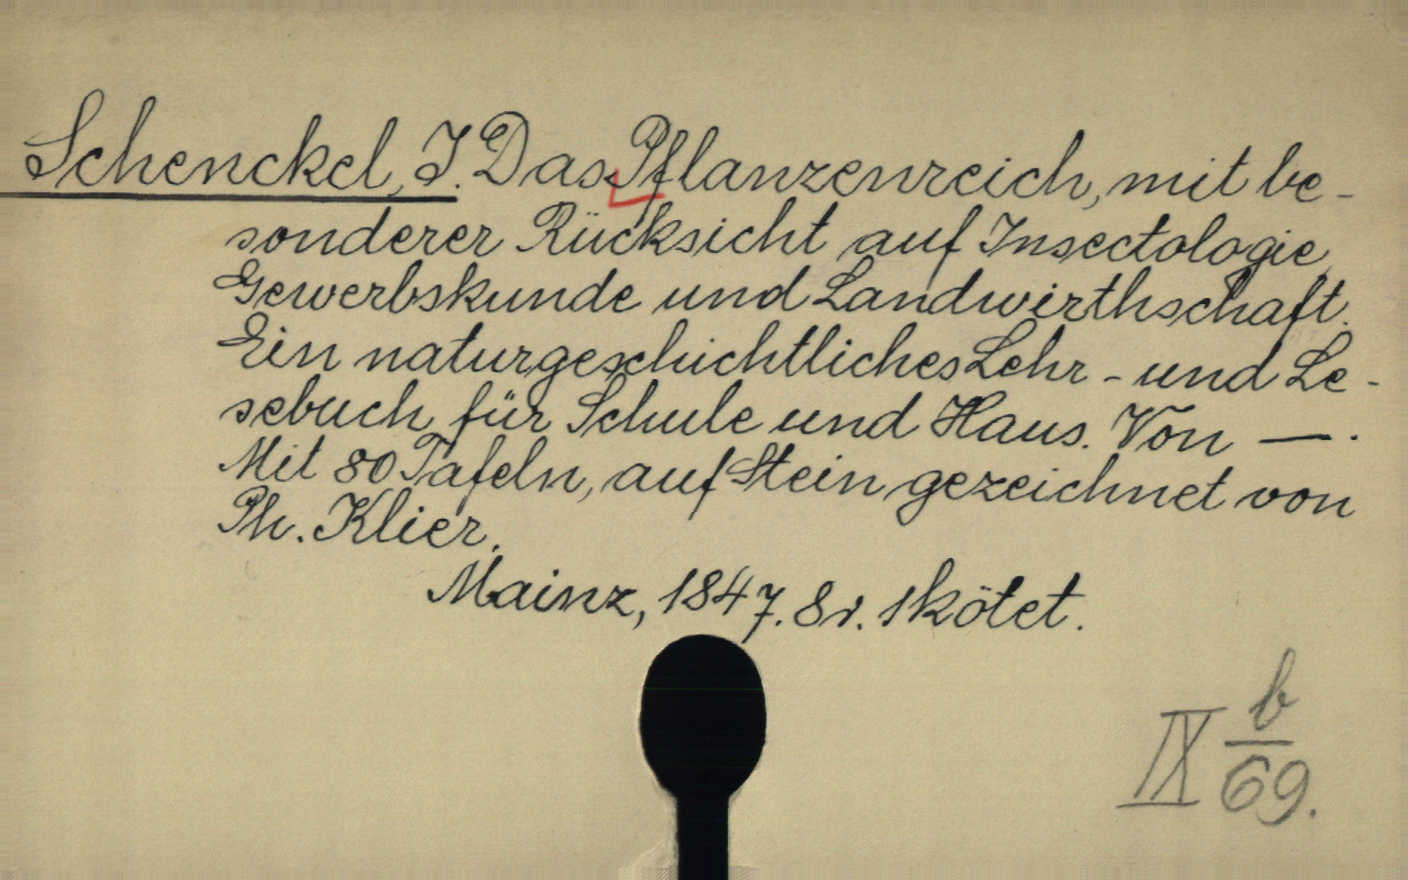 Schenckel, J. Das Pflanzenreich, mit be-
sonderer Rücksicht auf Insectologie,
Gewerbskunde und Landwirthschaft.
Ein naturgeschichtliches Lehr- und Le-
sebuch für Schule und Haus. Von —.
Mit 80 Tafeln, auf Stein gezeichnet von
Ph. Klier.
Mainz, 1847. 8r. 1 kötet.
IX b/69.